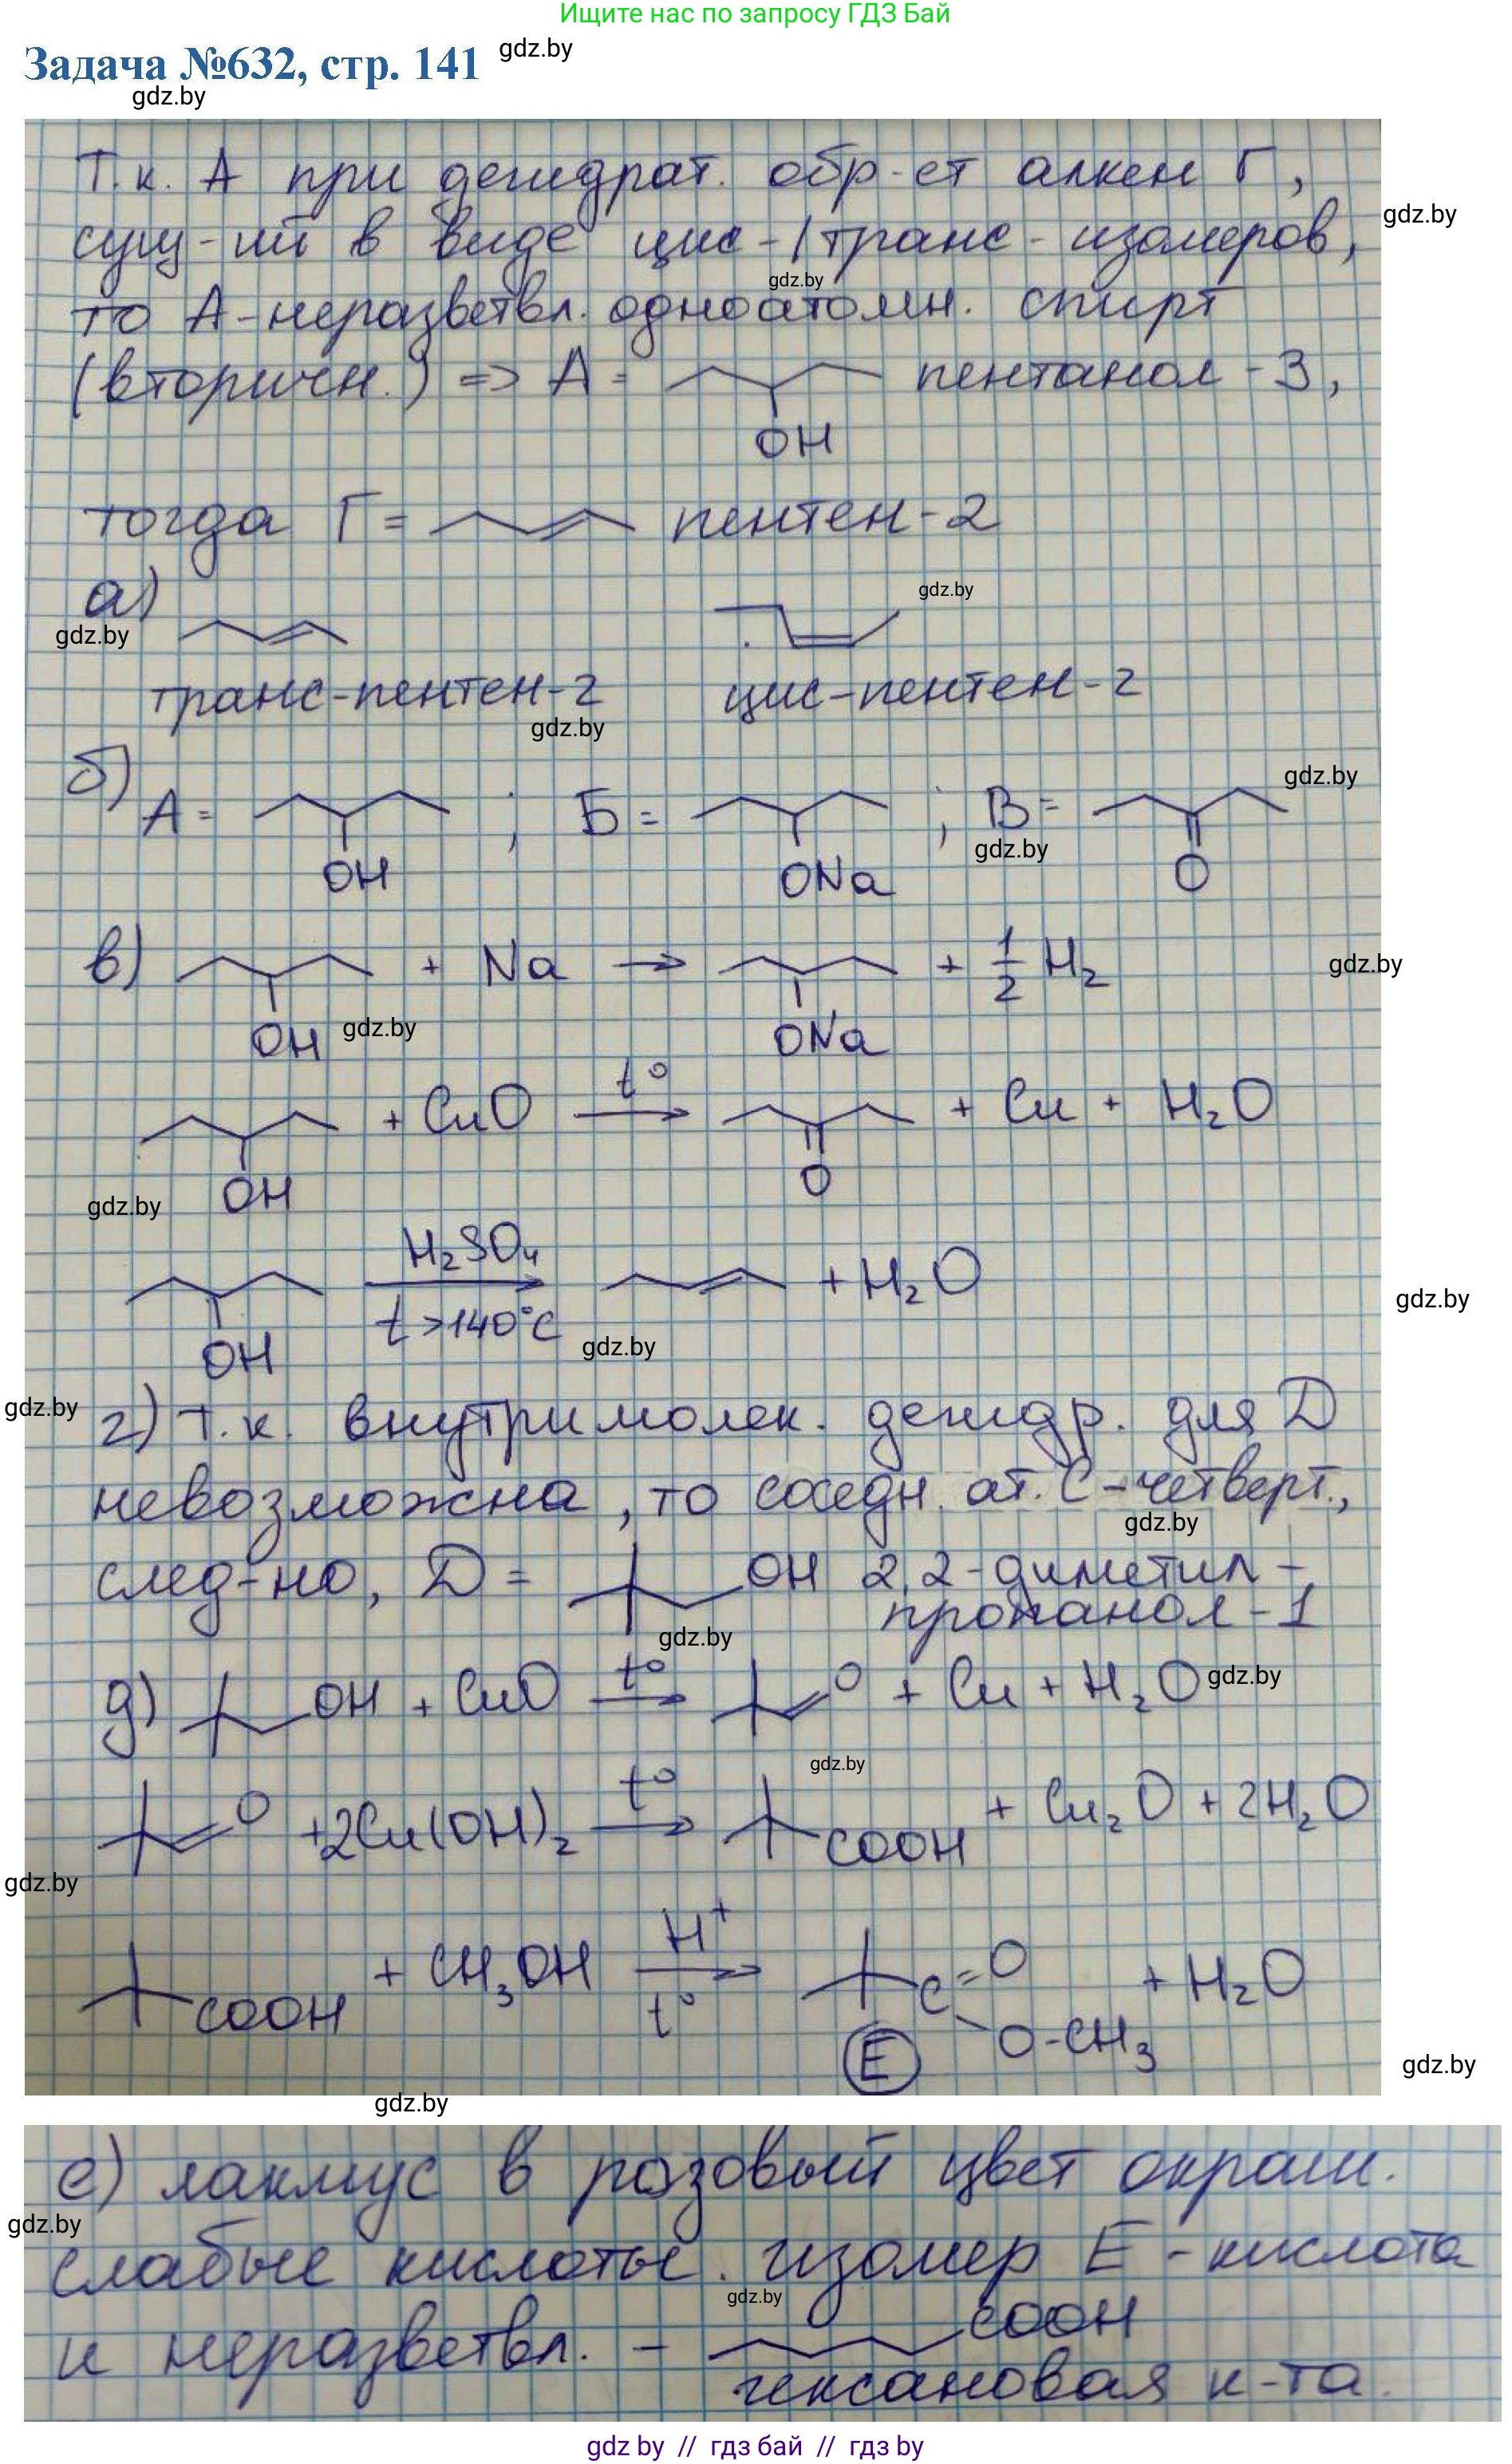 Ищите нас по запросу ГДЗ Бай
Задача №632, стр. 141 gdz.by
gdz.by
Т.к. А при дегидрат. обр-ет алкен Г,
сущ-ий в виде цис-/транс-изомеров, gdz.by
gdz.by
то А-неразветвл. одноатомн. спирт
(вторичн.) => А = пентанол-3,
OH
тогда Г = пентен-2
а) gdz.by
gdz.by
транс-пентен-2 цис-пентен-2
gdz.by
б) gdz.by
А = ; Б = ; В =
gdz.by
OH ONa O
в) + Na → + 1/2 H2 gdz.by
OH gdz.by ONa
+ CuO t° → + Cu + H2O
gdz.by OH O
H2SO4
→ + H2O
t >140°C gdz.by
OH gdz.by
gdz.by
г) т.к. внутримолек. дегидр. для D
невозможна, то соседн. ат. С-четверт.,
gdz.by
след-но, D = OH 2,2-диметил-
пропанол-1
gdz.by
д) OH + CuO t° → O + Cu + H2O gdz.by
gdz.by
O +2Cu(OH)2 t° → COOH + Cu2O + 2H2O
gdz.by
COOH + CH3OH H+ → t° C=O + H2O
O-CH3
E gdz.by
gdz.by
е) лакмус в розовый цвет окраш.
gdz.by
слабые кислоты. изомер Е-кислота
gdz.by
и неразветвл. - COOH
гексановая к-та.
gdz by // гдз бай // гдз by